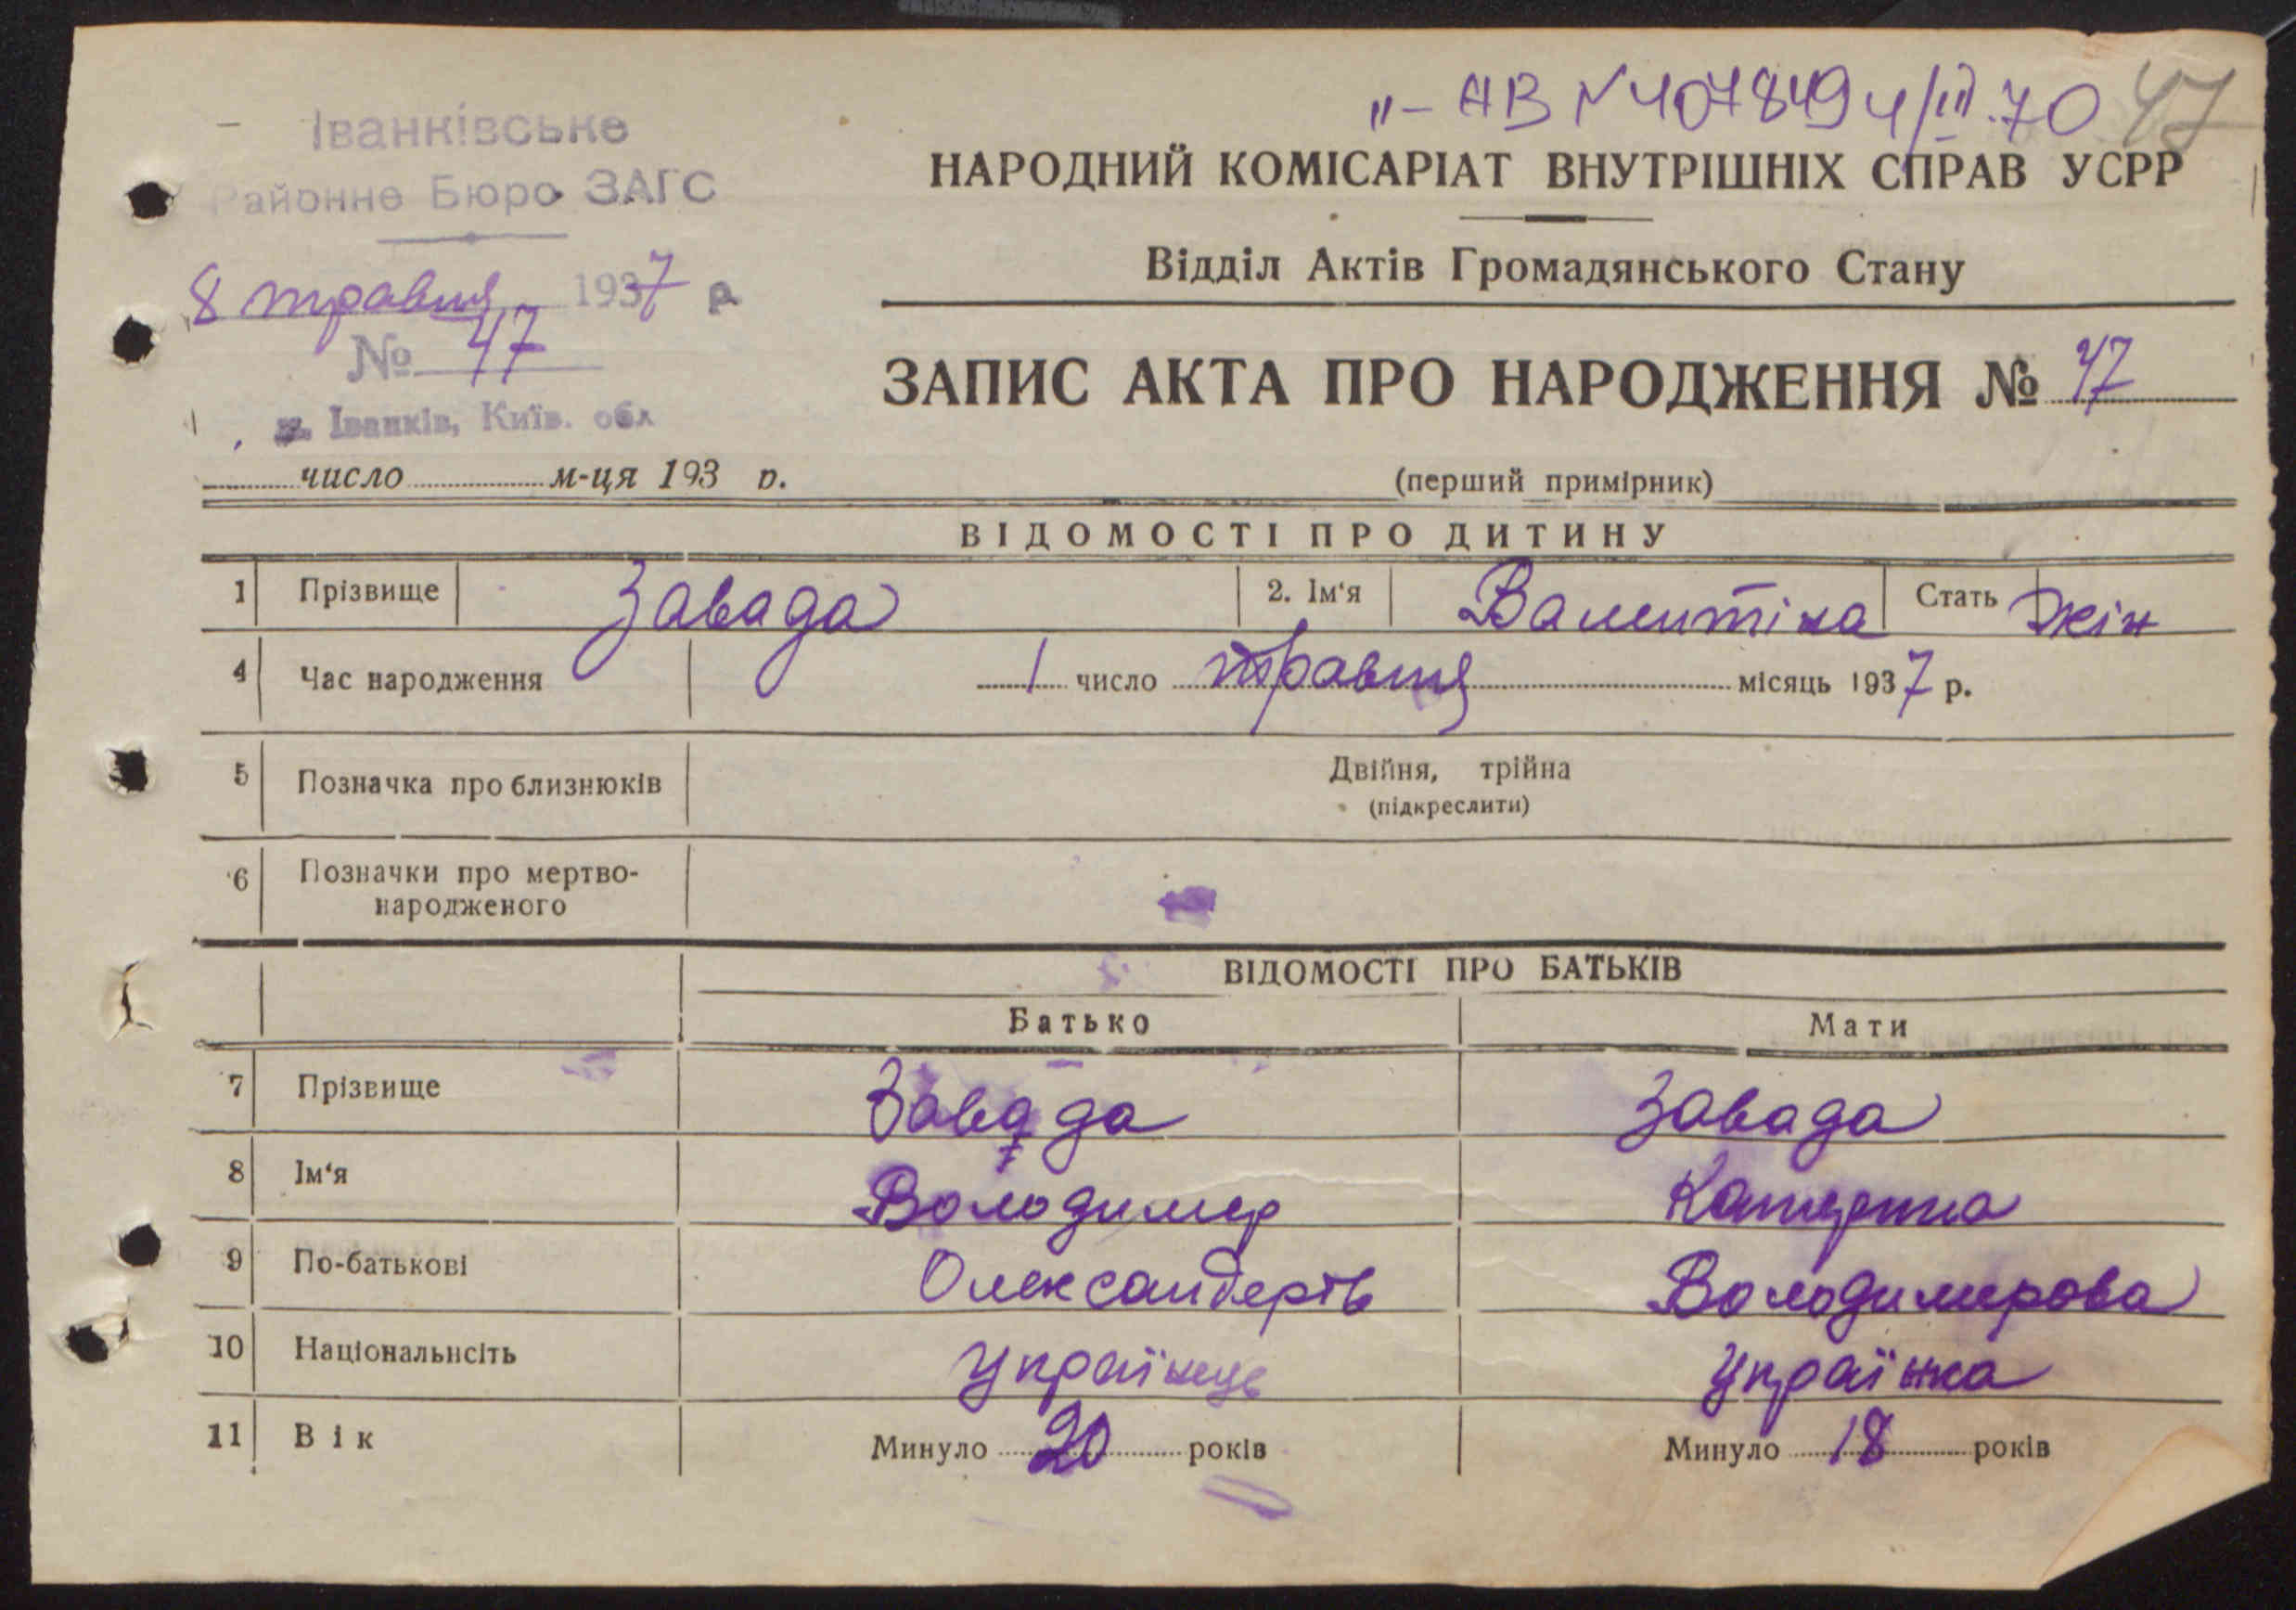 "- АВ №407849 4/III.70 47
Іванківське
Районне Бюро ЗАГС
8 травня 1937 р
№ 47
м. Іванків, Київ. обл
число м-ця 193 р.
НАРОДНИЙ КОМІСАРІАТ ВНУТРІШНІХ СПРАВ УСРР
Відділ Актів Громадянського Стану
ЗАПИС АКТА ПРО НАРОДЖЕННЯ № 47
(перший примірник)
ВІДОМОСТІ ПРО ДИТИНУ
1 Прізвище Завада 2. Ім‘я Валентіна Стать жін
4 Час народження 1 число травня місяць 1937 р.
5 Позначка про близнюків Двійня, трійна
(підкреслити)
6 Позначки про мертво-
народженого
ВІДОМОСТІ ПРО БАТЬКІВ
Батько Мати
7 Прізвище Завада Завада
8 Ім‘я Володимер Катерина
9 По-батькові Олександерів Володимерова
10 Національнсіть Українець Українка
11 Вік Минуло 20 років Минуло 18 років